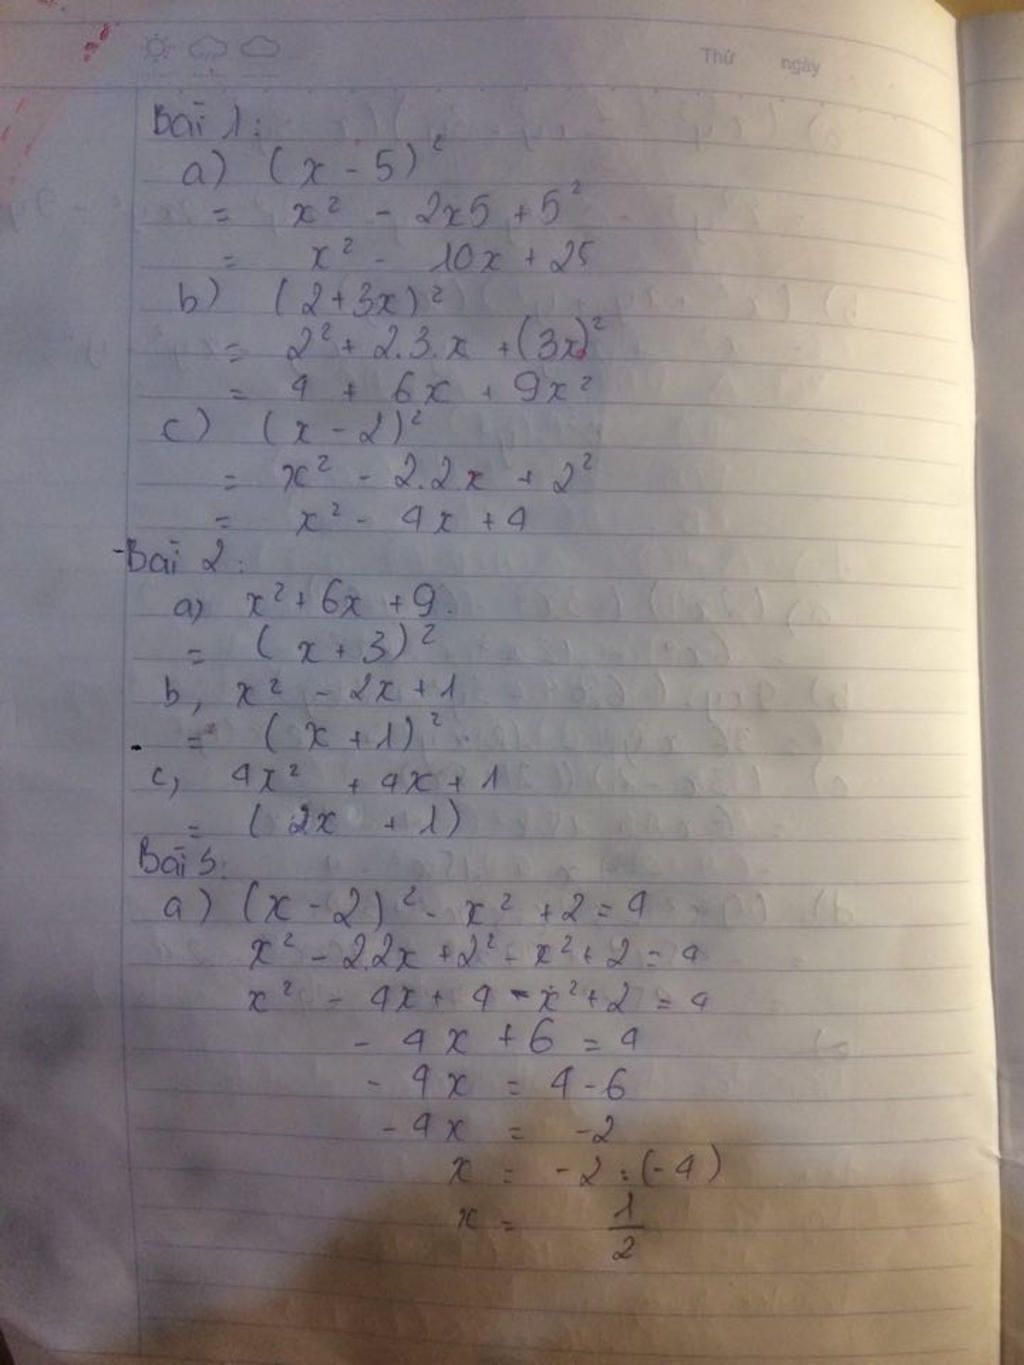 Thứ ngày
Bài 1:
a) (x - 5)²
= x² - 2x5 + 5²
= x² - 10x + 25
b) (2+3x)²
= 2² + 2.3.x + (3x)²
= 4 + 6x + 9x²
c) (x - 2)²
= x² - 2.2x + 2²
= x² - 4x + 4
Bài 2:
a) x² + 6x + 9.
= (x + 3)²
b, x² - 2x + 1
= (x + 1)²
c, 4x² + 4x + 1
= (2x + 1)
Bài 3:
a) (x - 2)² - x² + 2 = 4
x² - 2.2x + 2² - x² + 2 = 4
x² - 4x + 4 - x² + 2 = 4
- 4x + 6 = 4
- 4x = 4 - 6
- 4x = -2
x = -2 : (-4)
x = 1/2